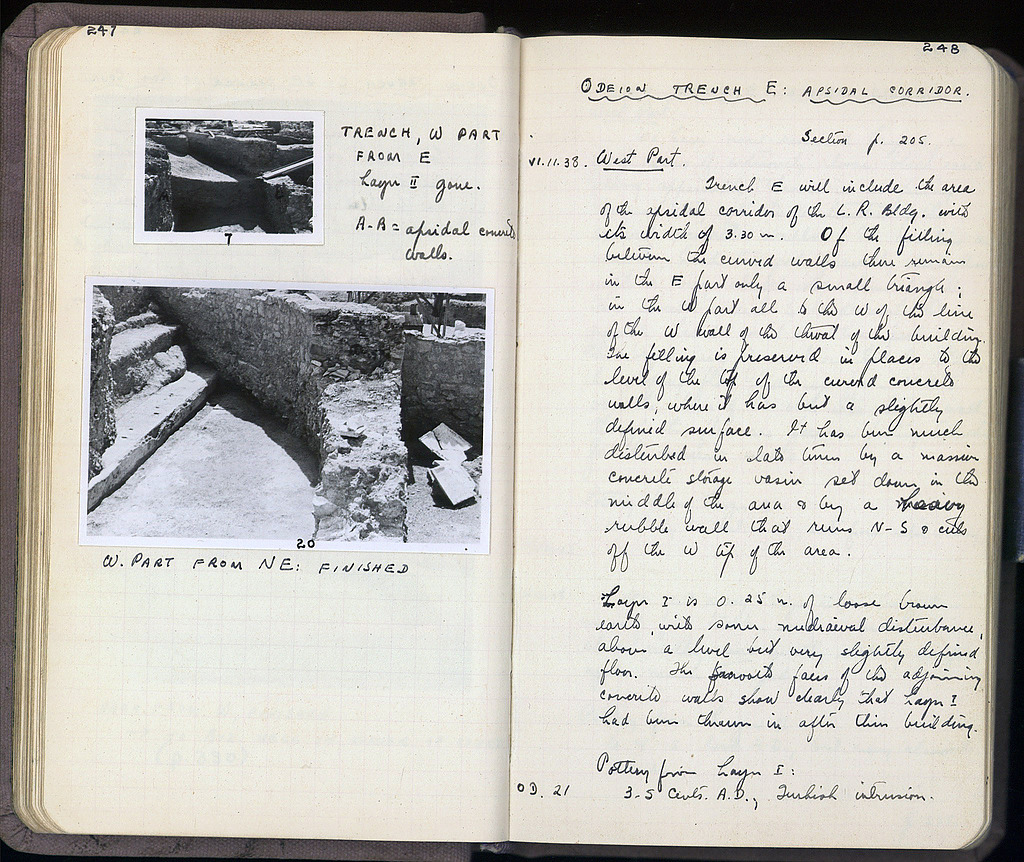 247
TRENCH, W PART
FROM E
Layer II gone.
A-B = apsidal concrete
walls.
7
20
W. PART FROM NE: FINISHED
248
ODEION TRENCH E: APSIDAL CORRIDOR.
Section p. 205.
VI.11.38. West Part.
Trench E will include the area
of the apsidal corridor of the L. R. Bldg. with
its width of 3.30 m. Of the filling
between the curved walls there remain
in the E part only a small triangle;
in the W part all to the W of the line
of the W wall of the throat of the building.
The filling is preserved in places to the
level of the top of the curved concrete
walls, where it has but a slightly
defined surface. It has been much
disturbed in late times by a massive
concrete storage basin set down in the
middle of the area & by a heavy
rubble wall that runs N-S & cuts
off the W tip of the area.
Layer I is 0.25 m. of loose brown
earth, with some mediaeval disturbance,
above a level but very slightly defined
floor. The smooth faces of the adjoining
concrete walls show clearly that Layer I
had been thrown in after their building.
Pottery from Layer I:
OD. 21 3-5 Cents. A.D., Turkish intrusion.